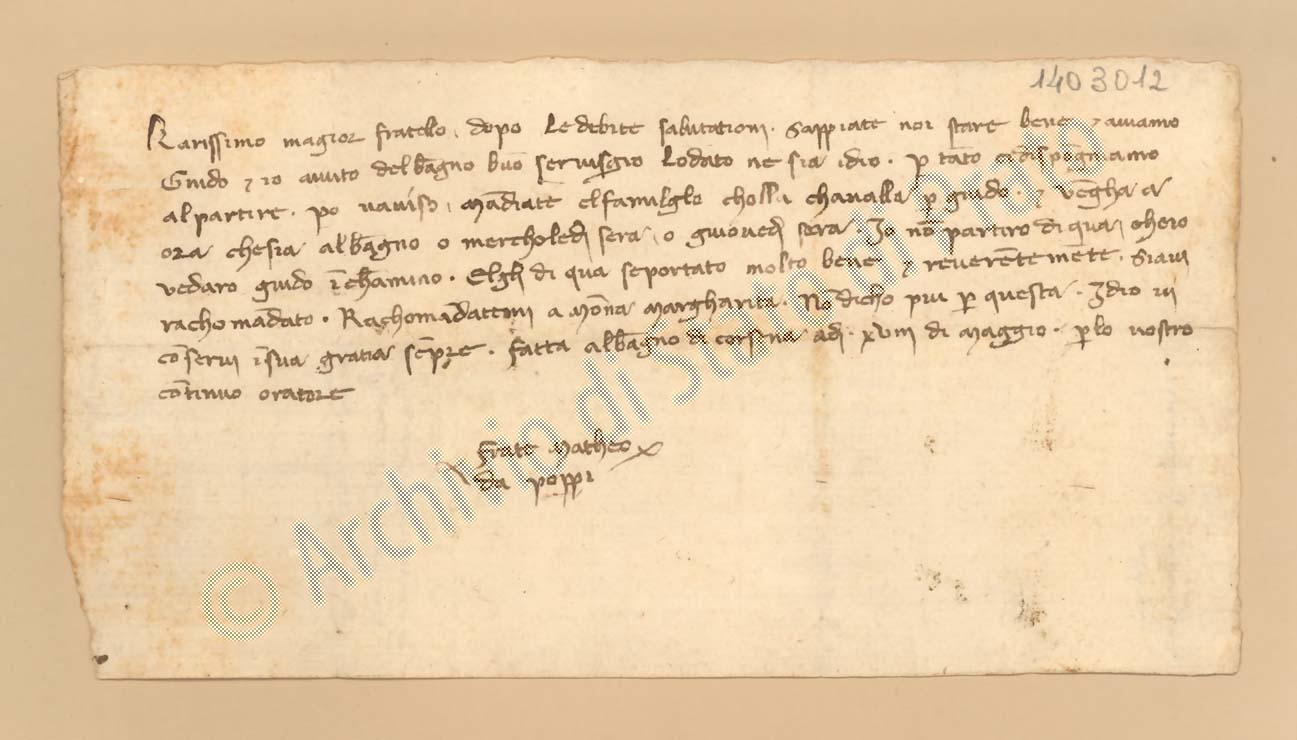 1403012
Karissimo magior fratello, dopo le debite salutationi. Sappiate noi stare bene e aviamo
Guido e io avuto del bagno buō servisgio lodato ne sia idio. p tāto ci dispogniamo
al partire. po vaviso, mādiate el famiglo cholla chavalla p guido. e vēgha a
ora che sia al bagno o mercholedi sera, o giovedi sera. Io nō partiro di qua, chero
vedaro guido ī chamino. Elgli di qua se portato molto bene e reverētemēte. Siavi
rachomādato. Rachomādatemi a Mōna Margharita. Nō dicho piu p questa. Idio vi
cōservi ī sua gratia sēpre. Fatta al bagno di corsena adi xviii di Maggio. p lo vostro
cōtinuo oratore
Frate Matheo
da Poppi
© Archivio di Stato di Prato